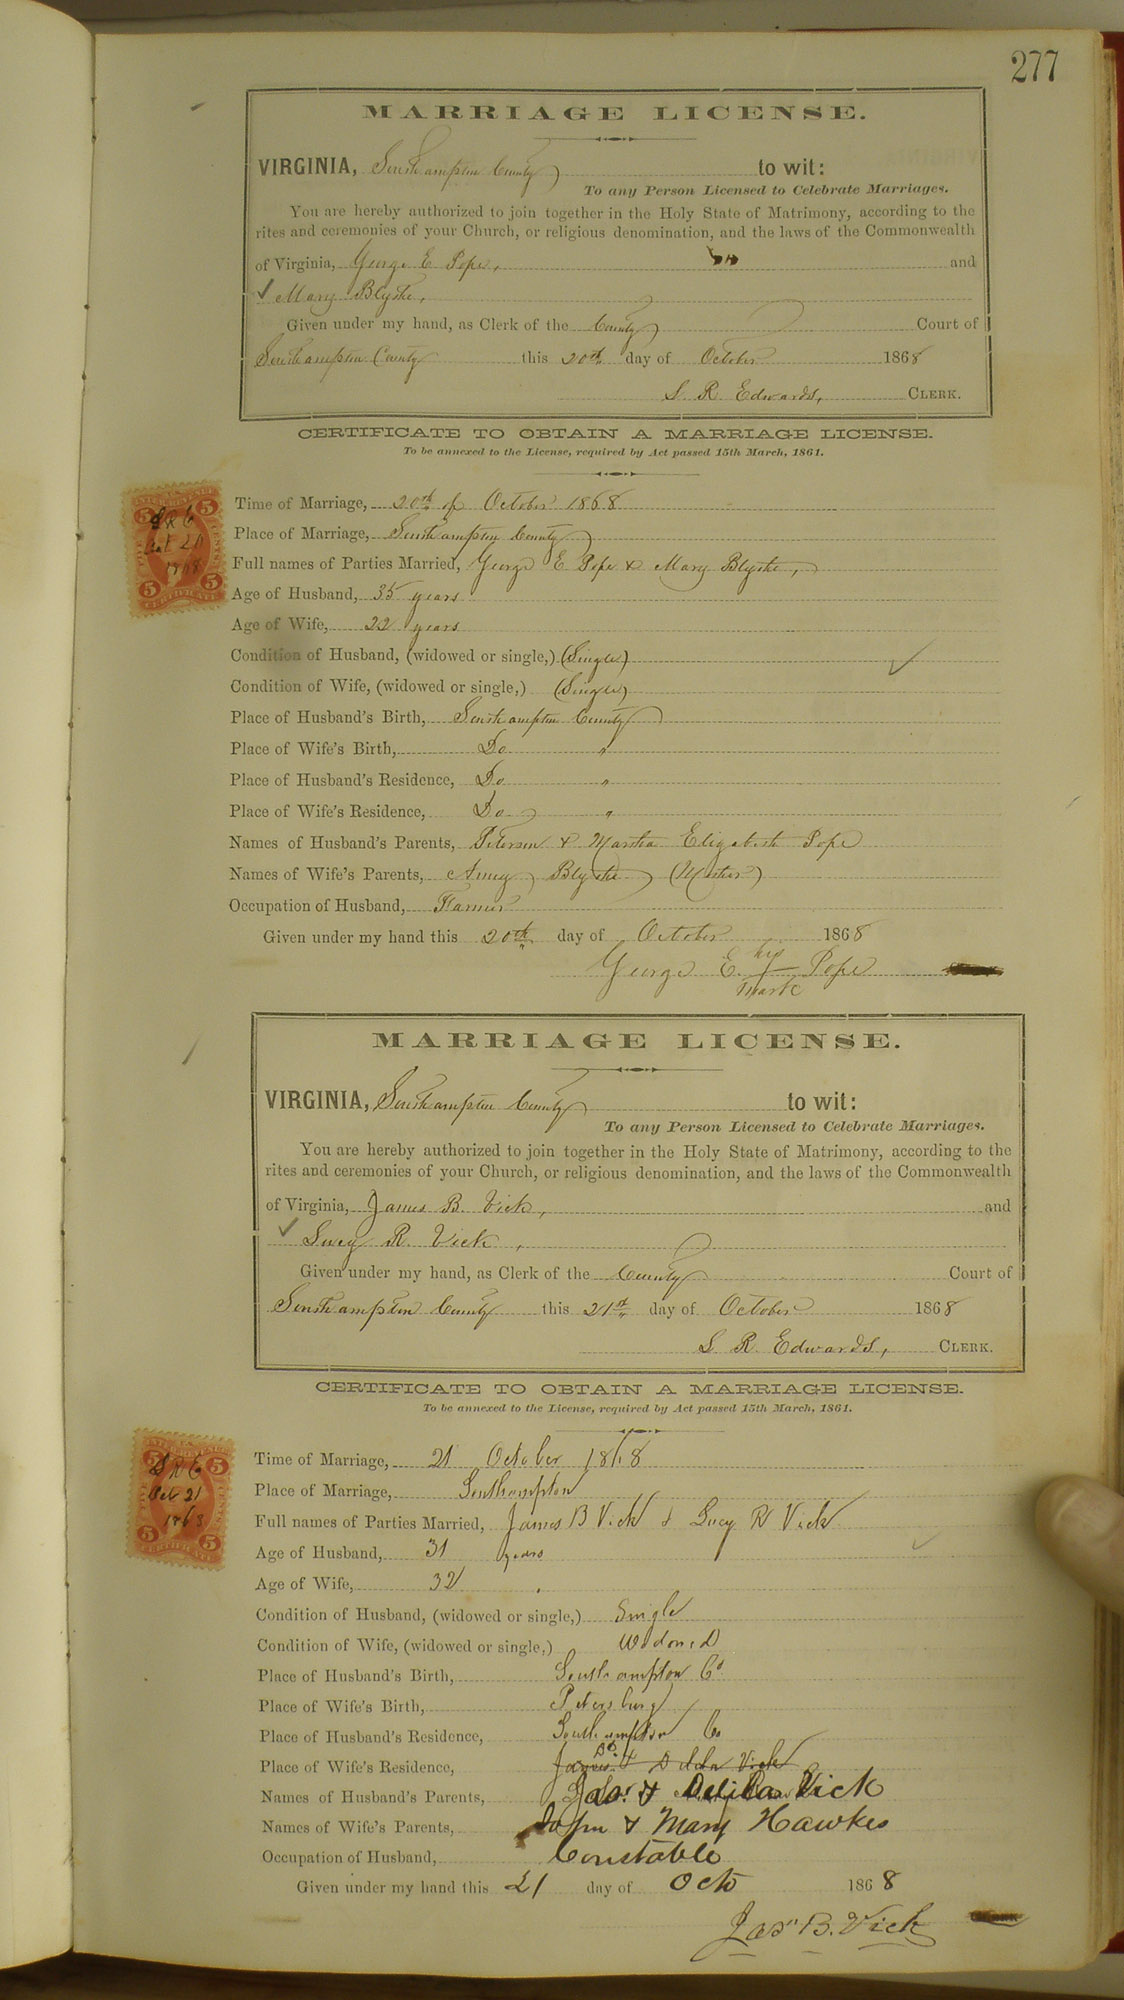 277
MARRIAGE LICENSE.
VIRGINIA, Southampton County to wit:
To any Person Licensed to Celebrate Marriages.
You are hereby authorized to join together in the Holy State of Matrimony, according to the
rites and ceremonies of your Church, or religious denomination, and the laws of the Commonwealth
of Virginia, George E Pope, and
Mary Blythe,
Given under my hand, as Clerk of the County Court of
Southampton County this 20th day of October 1868
L. R. Edwards, CLERK.
CERTIFICATE TO OBTAIN A MARRIAGE LICENSE.
To be annexed to the License, required by Act passed 15th March, 1861.
Time of Marriage, 20th of October 1868
Place of Marriage, Southampton County
Full names of Parties Married, George E Pope & Mary Blythe,
Age of Husband, 35 years
Age of Wife, 22 years
Condition of Husband, (widowed or single,) (Single)
Condition of Wife, (widowed or single,) (Single)
Place of Husband's Birth, Southampton County
Place of Wife's Birth, Do "
Place of Husband's Residence, Do "
Place of Wife's Residence, Do "
Names of Husband's Parents, Peterson & Martha Elizabeth Pope
Names of Wife's Parents, Amey Blythe (Mother)
Occupation of Husband, Farmer
Given under my hand this 20th day of October 1868
George E. his Pope
mark
MARRIAGE LICENSE.
VIRGINIA, Southampton County to wit:
To any Person Licensed to Celebrate Marriages.
You are hereby authorized to join together in the Holy State of Matrimony, according to the
rites and ceremonies of your Church, or religious denomination, and the laws of the Commonwealth
of Virginia, James B. Vick, and
Lucy R. Vick,
Given under my hand, as Clerk of the County Court of
Southampton County this 21st day of October 1868
L R. Edwards, CLERK.
CERTIFICATE TO OBTAIN A MARRIAGE LICENSE.
To be annexed to the License, required by Act passed 15th March, 1861.
Time of Marriage, 21 October 1868
Place of Marriage, Southampton
Full names of Parties Married, James B Vick & Lucy R Vick
Age of Husband, 31 years
Age of Wife, 32 "
Condition of Husband, (widowed or single,) Single
Condition of Wife, (widowed or single,) Widowed
Place of Husband's Birth, Southampton Co
Place of Wife's Birth, Petersburg
Place of Husband's Residence, Southampton Co
Place of Wife's Residence, Do
Names of Husband's Parents, Jas. & Delila Vick
Names of Wife's Parents, John & Mary Hawkes
Occupation of Husband, Constable
Given under my hand this 21 day of Octo 1868
Jas B. Vick